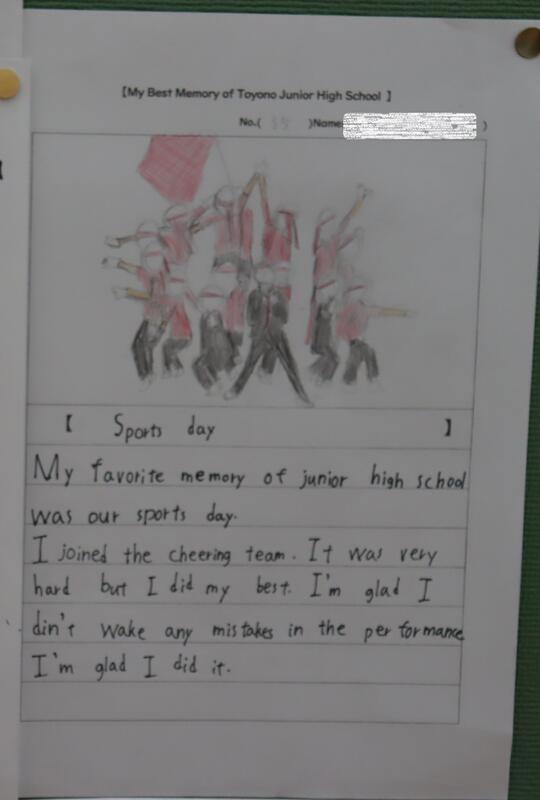 【My Best Memory of Toyono Junior High School 】
No.( )Name )
【 Sports day 】
My favorite memory of junior high school
was our sports day.
I joined the cheering team. It was very
hard but I did my best. I'm glad I
din't wake any mistakes in the performance
I'm glad I did it.